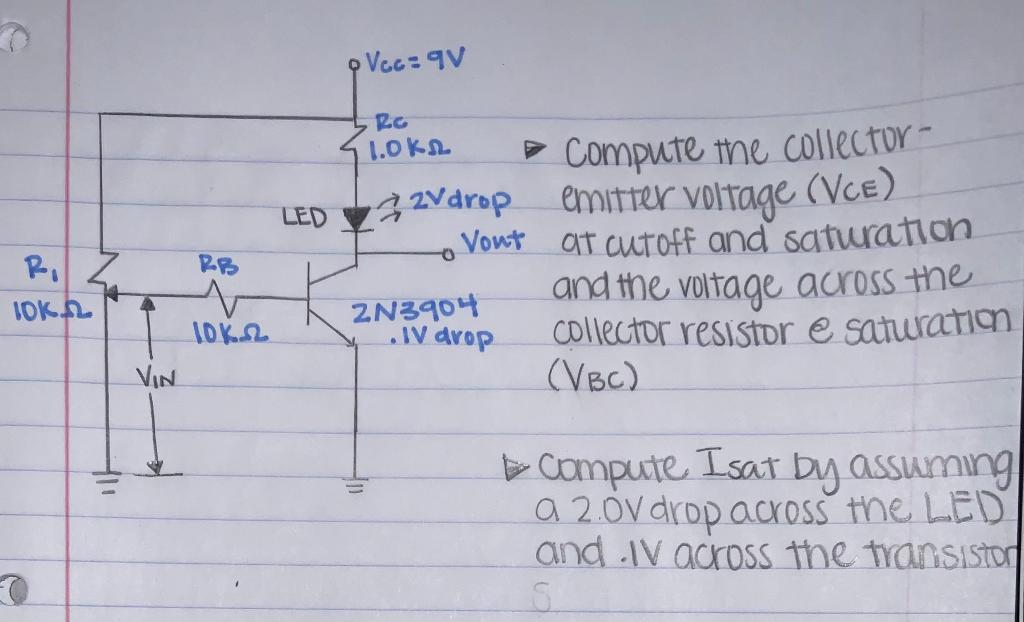 Vcc = 9V
Rc
1.0KΩ
LED
2V drop
Vout
R1
10KΩ
RB
10KΩ
2N3904
.1V drop
VIN
▶ Compute the collector-
emitter voltage (VCE)
at cutoff and saturation
and the voltage across the
collector resistor @ saturation
(VBC)
▶ Compute Isat by assuming
a 2.0V drop across the LED
and .1V across the transistor